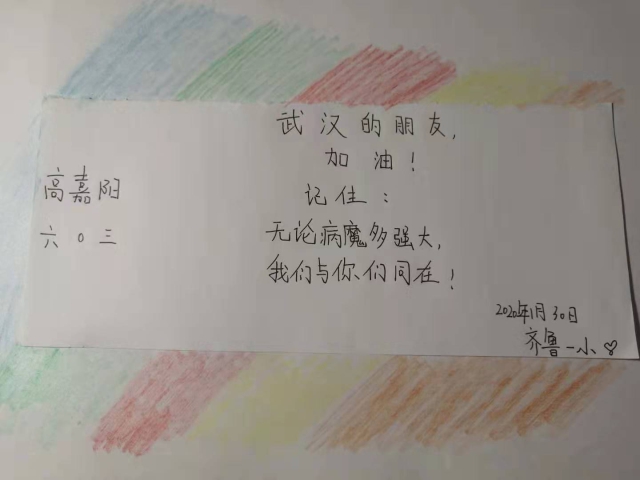 武汉的朋友,
加油!
记住:
无论病魔多强大,
我们与你们同在!
高嘉阳
六0三
2020年1月30日
齐鲁一小♡